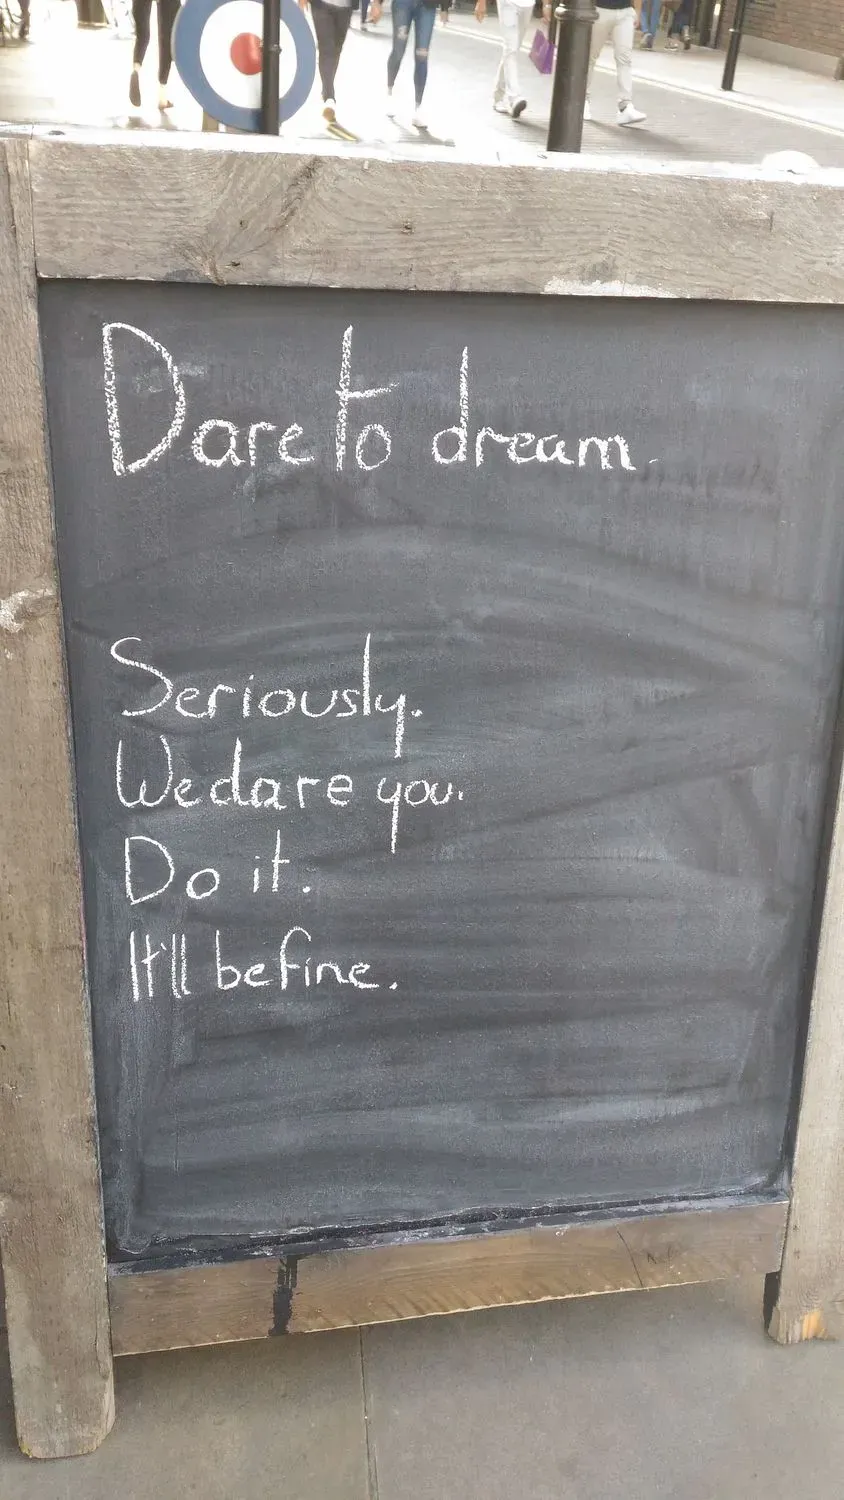 Dare to dream.
Seriously.
We dare you.
Do it.
It'll be fine.